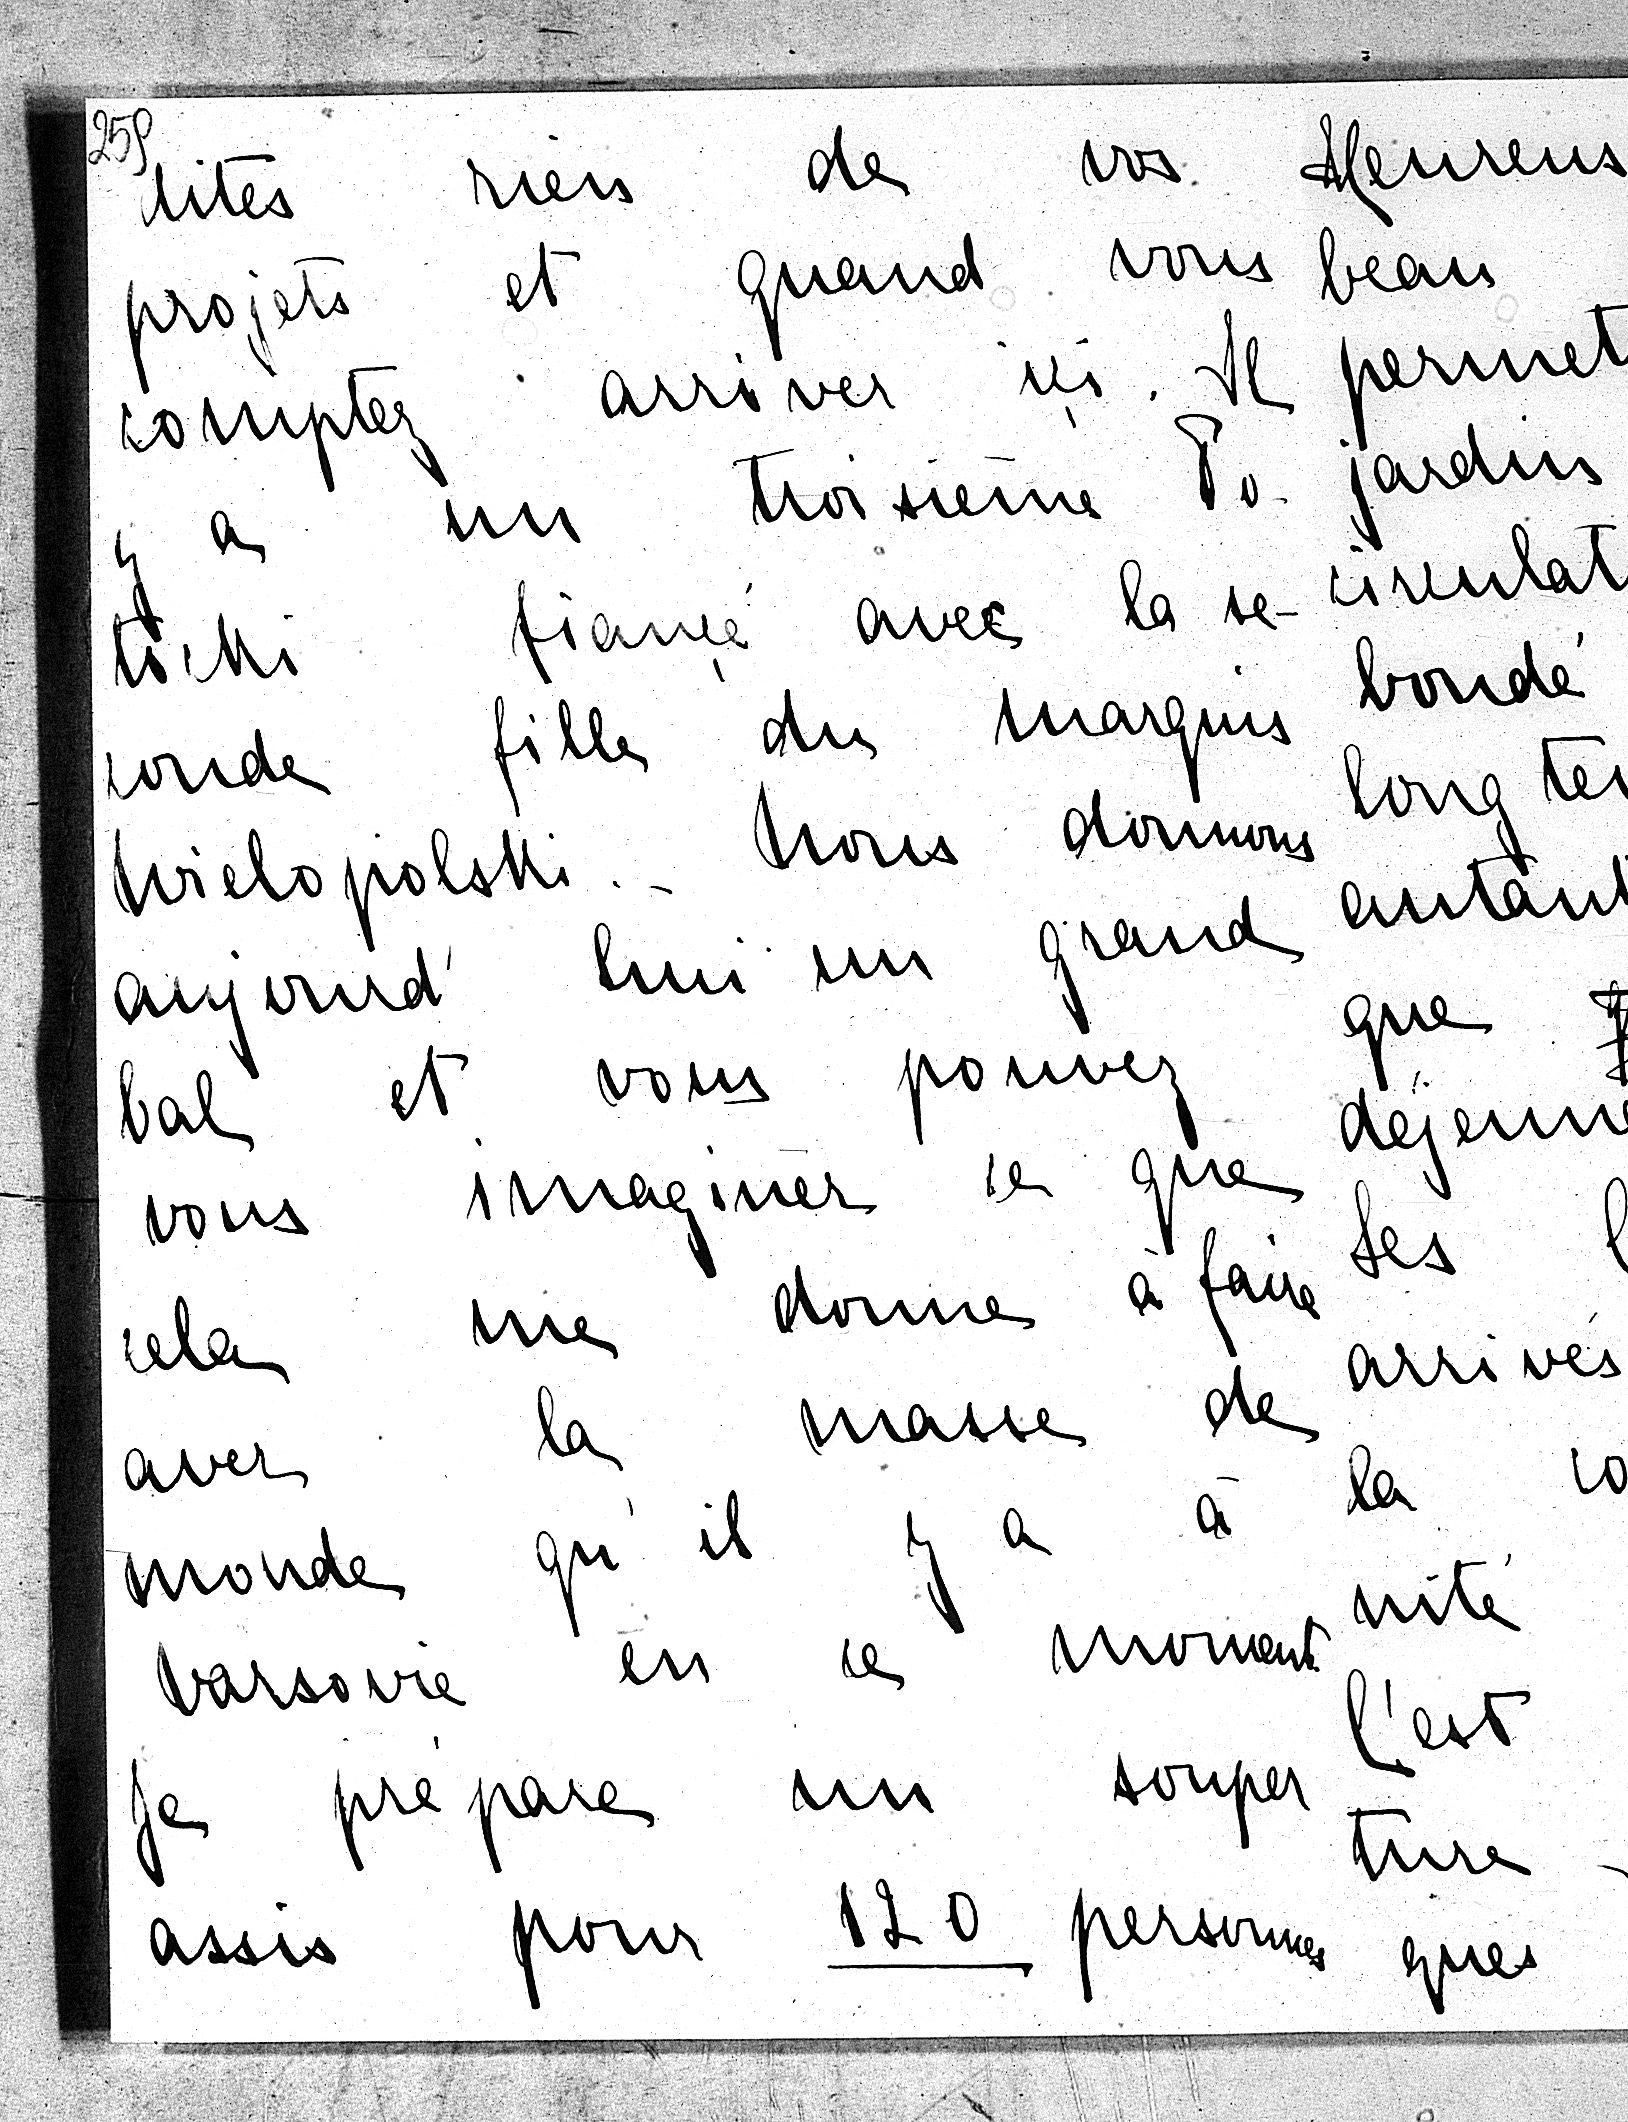 259
dites rien de vos
projets et quand vous
comptez arriver içi. Il
y a un troisième Po-
tocki fiançé avec la se-
conde fille du marquis
Wielopolski. - Nous donnons
aujourd'hui un grand
bal et vous pouvez
vous imaginer ce que
cela me donne à faire
avec la masse de
monde qu'il y a à
Varsovie en ce moment.
Je prépare un souper
assis pour 120 personnes
Heureus
beau
permet
jardins
circulat
bondé
long te
autant
que
déjeune
Les
arrivés
la co
nité
C'est
ture -
ques